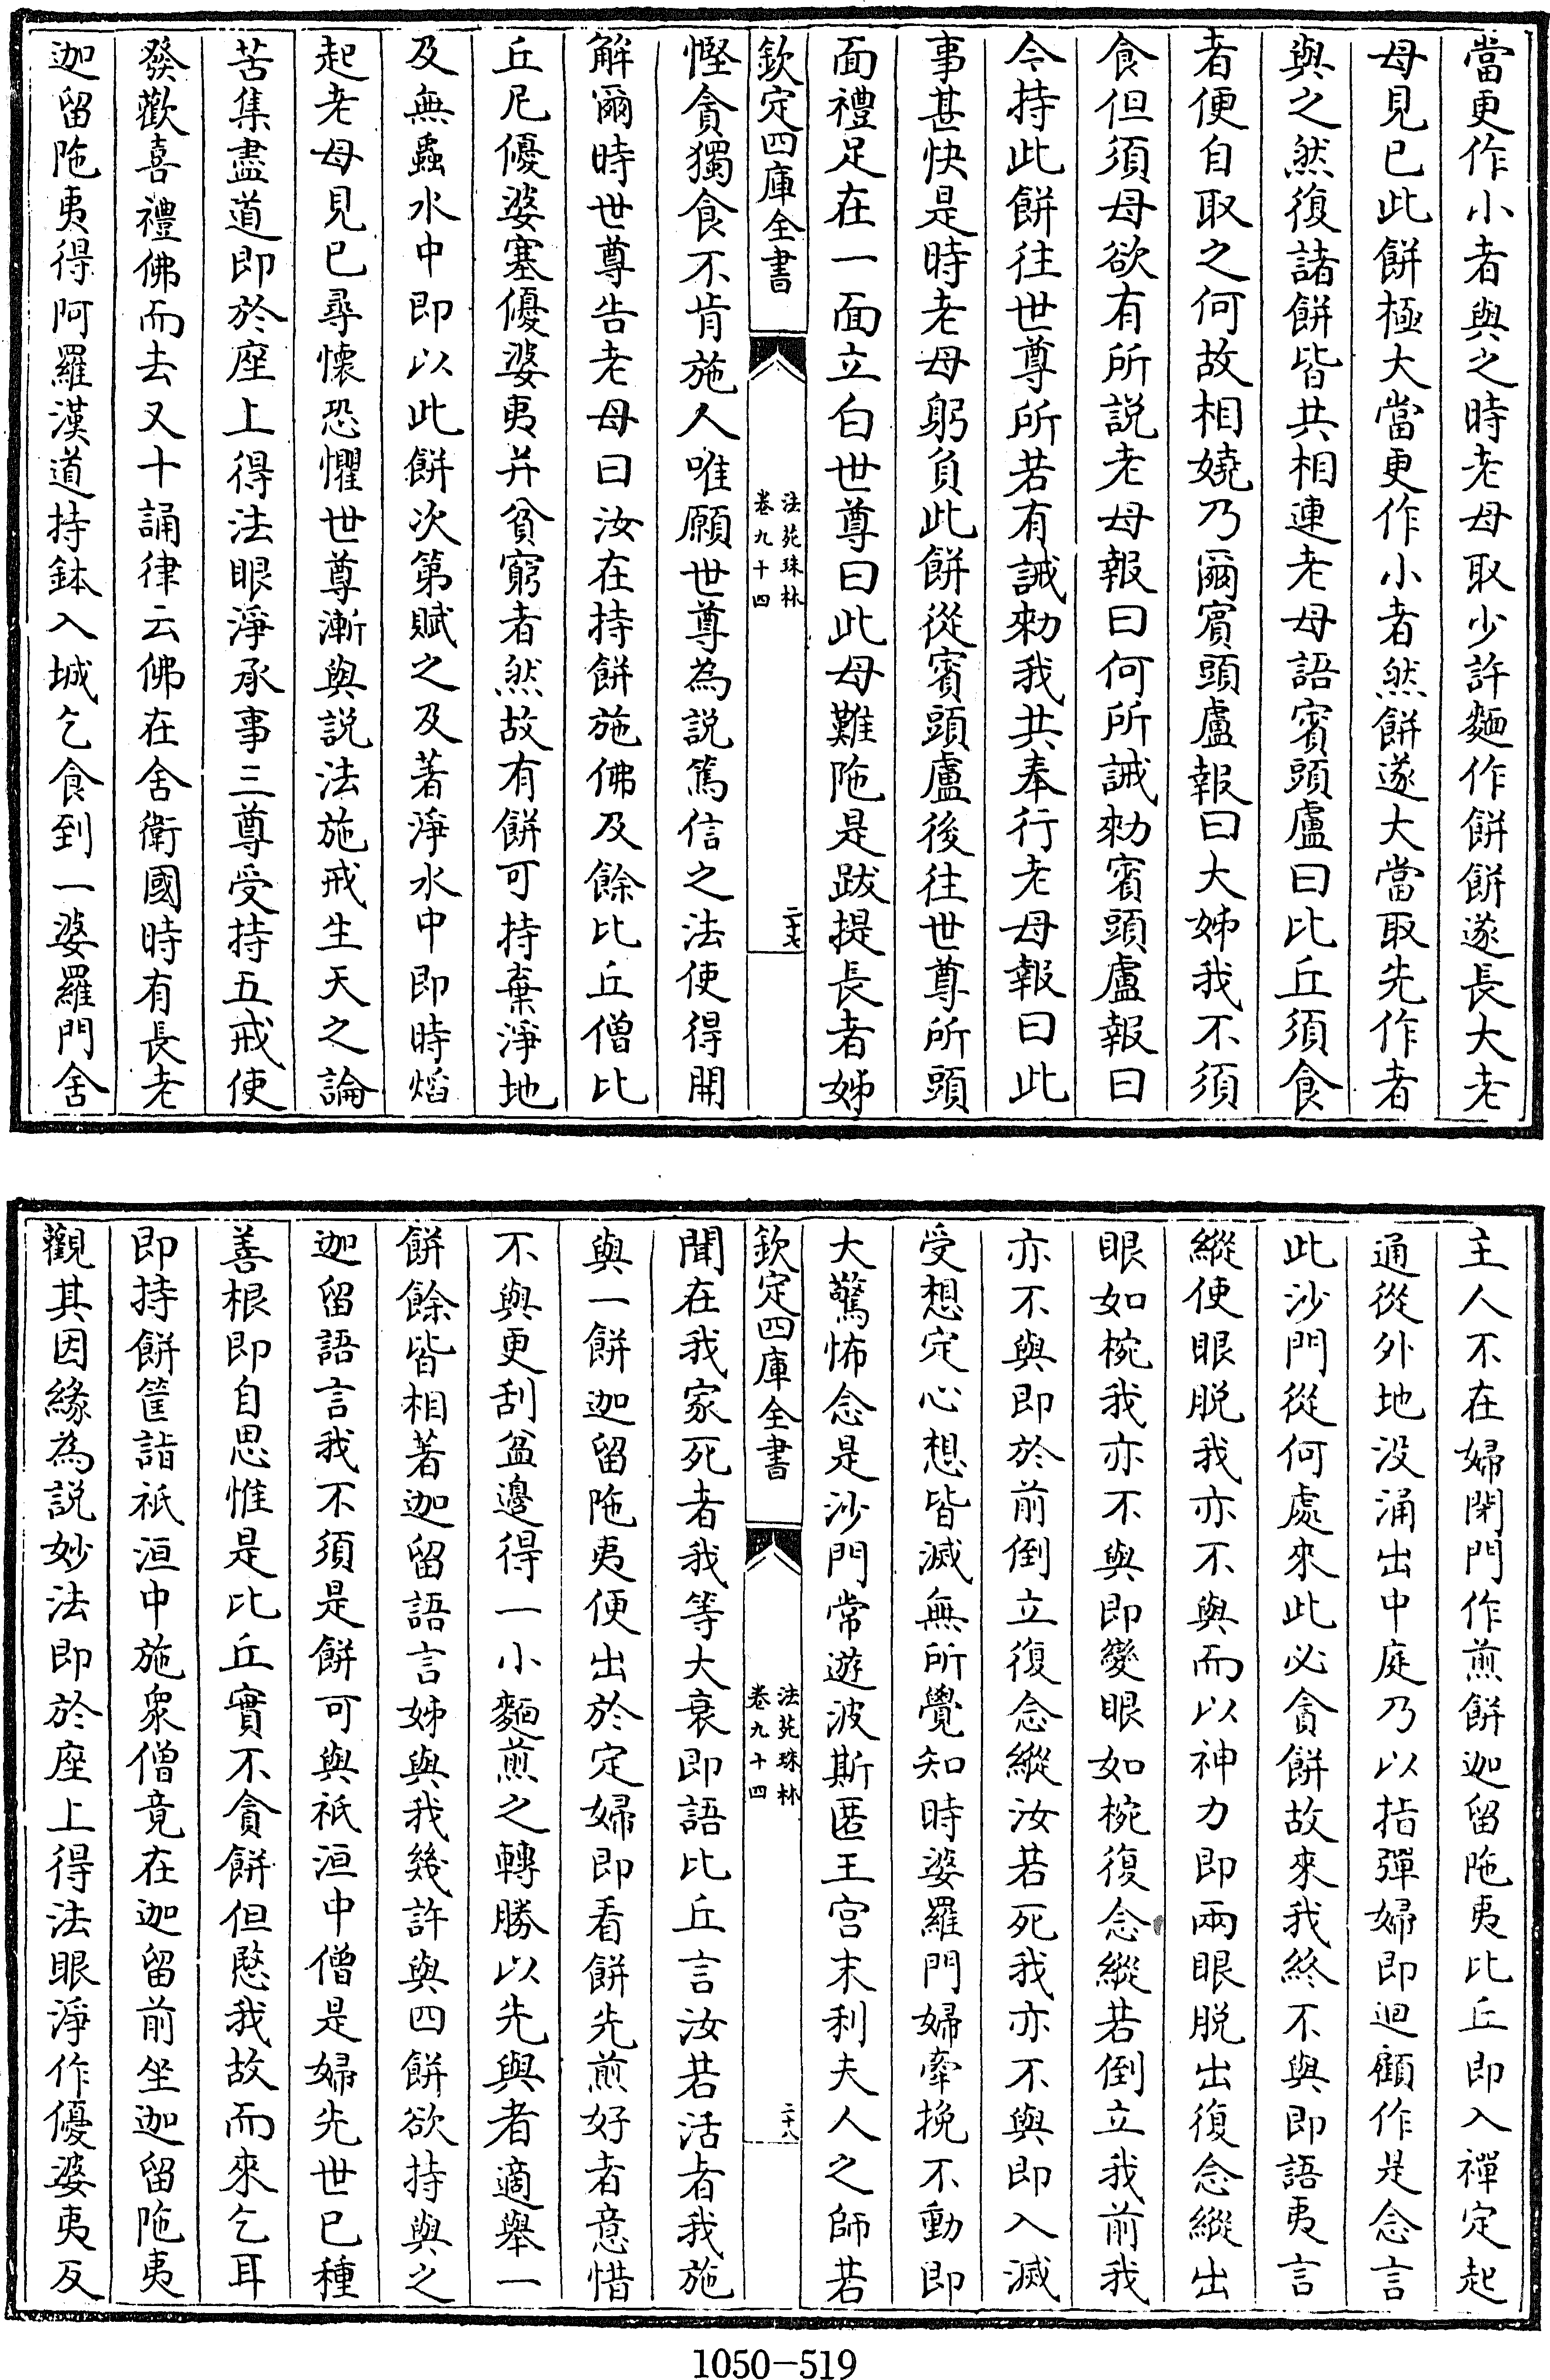 當更作小者與之時老母取少許麵作餅餅遂長大老
母見已此餅極大當更作小者然餅遂大當取先作者
與之然復諸餅皆共相連老母語賓頭盧曰比丘須食
者便自取之何故相嬈乃爾賓頭盧報曰大姊我不須
食但須母欲有所説老母報曰何所誡勑賓頭盧報曰
今持此餅往世尊所若有誡勑我共奉行老母報曰此
事甚快是時老母躬負此餅從賓頭盧後往世尊所頭
面禮足在一面立白世尊曰此母難陁是跋提長者姊
欽定四庫全書
法苑珠林
卷九十四
二十七
慳貪獨食不肯施人唯願世尊為説篤信之法使得開
解爾時世尊告老母曰汝在持餅施佛及餘比丘僧比
丘尼優婆塞優婆夷并貧窮者然故有餅可持棄淨地
及無蟲水中即以此餅次第賦之及著淨水中即時熖
起老母見已尋懷恐懼世尊漸與説法施戒生天之論
苦集盡道即於座上得法眼淨承事三尊受持五戒使
發歡喜禮佛而去又十誦律云佛在舍衛國時有長老
迦留陁夷得阿羅漢道持鉢入城乞食到一婆羅門舍
主人不在婦閉門作煎餅迦留陁夷比丘即入禪定起
通從外地没涌出中庭乃以指彈婦即迴顧作是念言
此沙門從何處來此必貪餅故來我終不與即語夷言
縱使眼脱我亦不與而以神力即兩眼脱出復念縱出
眼如椀我亦不與即變眼如椀復念縱若倒立我前我
亦不與即於前倒立復念縱汝若死我亦不與即入滅
受想定心想皆滅無所覺知時婆羅門婦牽挽不動即
大驚怖念是沙門常遊波斯匿王宫末利夫人之師若
欽定四庫全書
法苑珠林
卷九十四
二十八
聞在我家死者我等大衰即語比丘言汝若活者我施
與一餅迦留陁夷便出於定婦即看餅先煎好者意惜
不與更刮盆邊得一小麵煎之轉勝以先與者適舉一
餅餘皆相著迦留語言姊與我幾許與四餅欲持與之
迦留語言我不須是餅可與祇洹中僧是婦先世已種
善根即自思惟是比丘實不貪餅但愍我故而來乞耳
即持餅筐詣祇洹中施衆僧竟在迦留前坐迦留陁夷
觀其因緣為説妙法即於座上得法眼淨作優婆夷反
1050-519